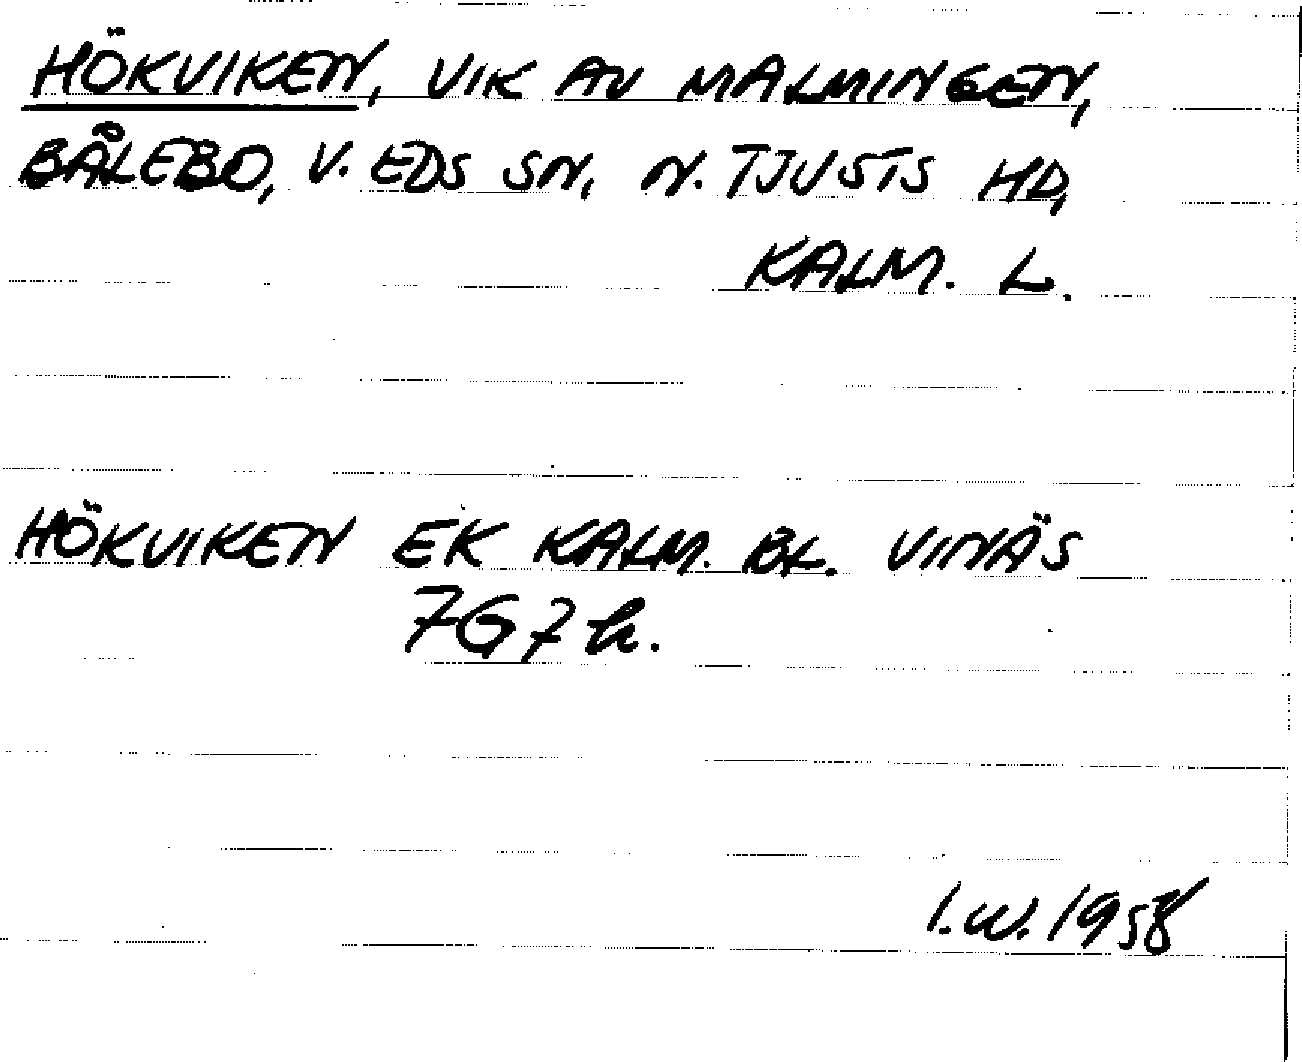 HÖKVIKEN, VIK AV MALMINGEN,
BÅLEBO, V. EDS SN, N. TJUSTS HD,
KALM. L.
HÖKVIKEN EK KALM. BL. VINÄS
7G7h.
I.W. 1958